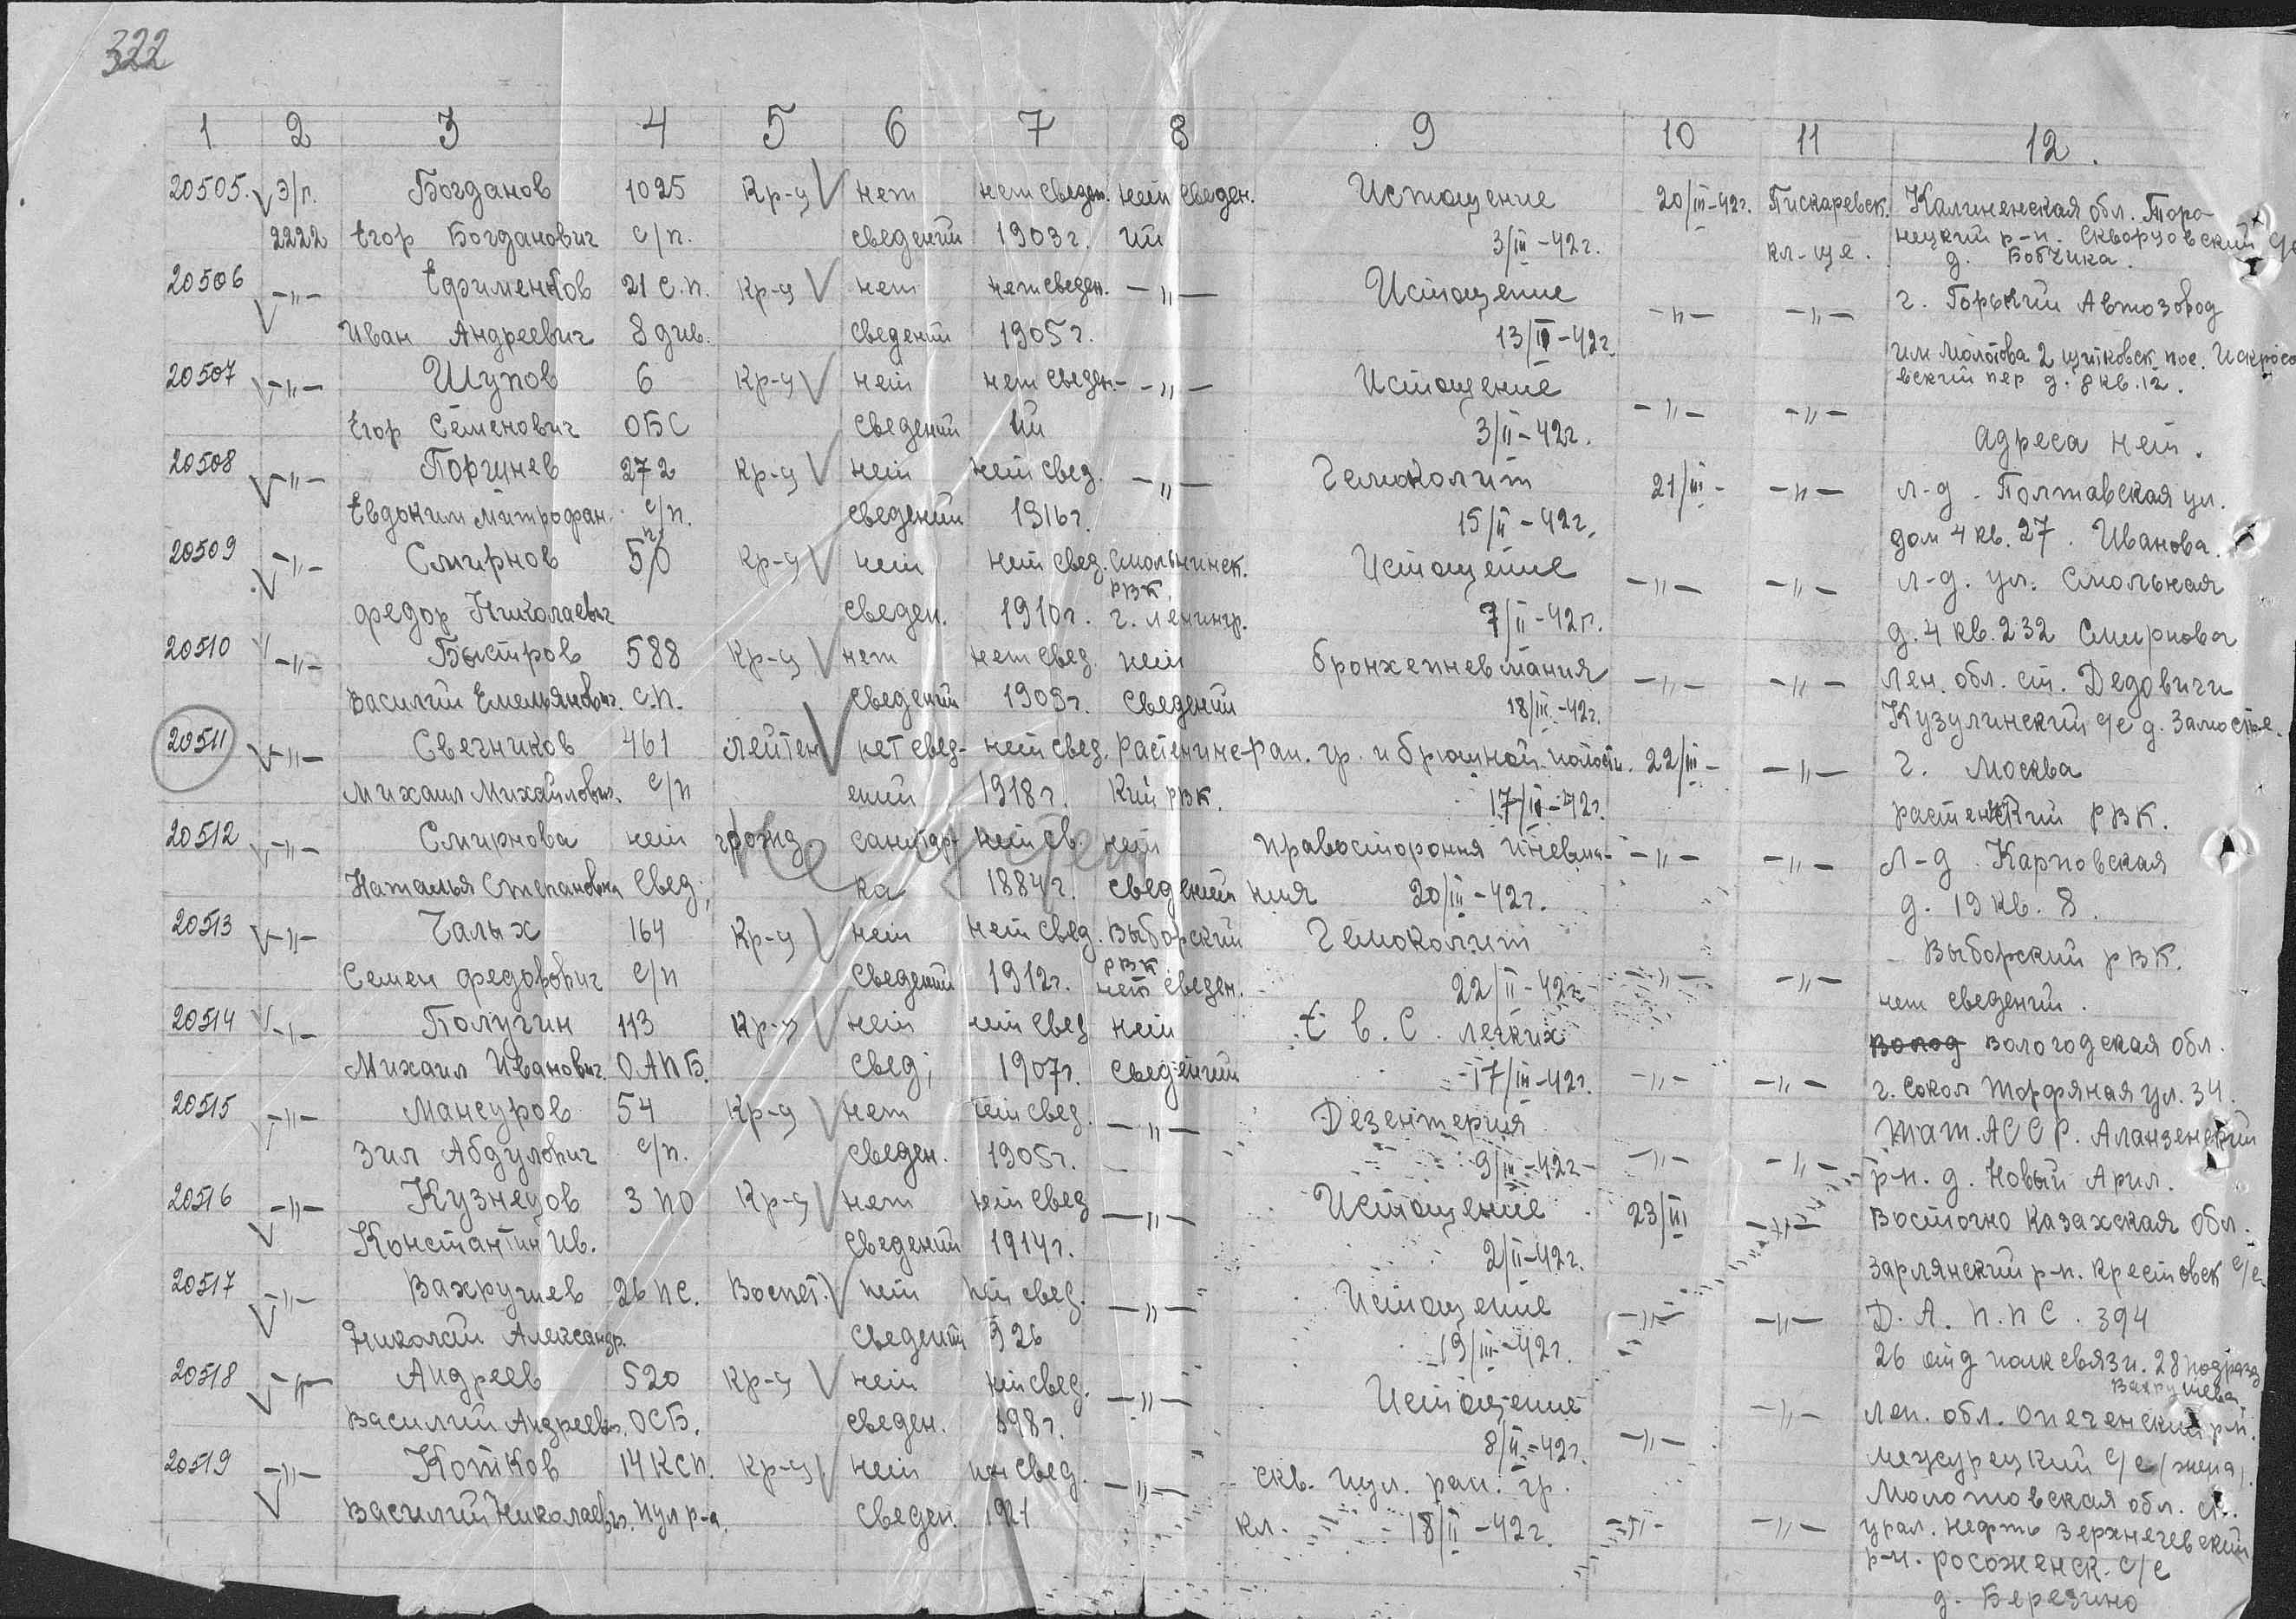 322
1 2 3 4 5 6 7 8 9 10 11 12.
20505. Э/г. Богданов 1025 Кр-ц нет нет сведен. нет сведен. Истощение 20/III-42г. Пискаревск. Калиненская обл. Торо-
2222 Егор Богданович с/п. сведений 1903г. ий 3/III-42г. кл-ще. нецкий р-н. Скворцовский
д. Бобчика.
20506 -"- Ефименков 21 с.п. Кр-ц нет нет сведен. -"- Истощение -"- -"- г. Горький Автозовод
Иван Андреевич 8 див. сведений 1905г. 13/II-42г. им Молотова 2 щитковск. пос.
20507 -"- Шупов 6 Кр-ц нет нет сведен- -"- Истощение -"- -"- вский пер д. 8 кв. 12.
Егор Семенович ОБС сведений ий 3/II-42г. Адреса нет.
20508 -"- Поргунев 272 Кр-ц нет нет свед. -"- Гемоколит 21/III- -"- л-д. Полтавская ул.
Евдоким Митрофан. с/п. сведений 1916г. 15/II-42г. дом 4 кв. 27. Иванова.
20509 -"- Смирнов Кр-ц нет нет свед. Смольнинск. Истощение -"- -"- л-д. ул. Смольная
РВК
Федор Николаевич сведен. 1910г. г. Ленингр. 7/II-42г. д. 4 кв. 232 Смирнова
20510 -"- Быстров 588 Кр-ц нет нет свед. нет бронхепневмания -"- -"- Лен. обл. ст. Дедовичи
Василий Емельянович. с.п. сведений 1909г. сведений 18/III-42г. Кузулинский с/с д. Замостье.
20511 -"- Свечников 461 Лейтен нет свед- нет свед. Растенинс- Ран. гр. и брюшной полость. 22/III- -"- г. Москва
Михаил Михайлович. с/п ений 1918г. кий РВК. 17/II-42г. Растенский РВК.
20512 -"- Смирнова нет гражд санитар- нет св. нет правостороння пневма- -"- -"- Л-д. Карповская
Наталья Степановна свед; ка 1884г. сведений ния 20/III-42г. д. 19 кв. 8.
20513 -"- Чалых 164 Кр-ц нет нет свед. Выборский Гемоколит Выборский РВК.
РВК
Семен Федорович с/п сведений 1912г. нет сведен. 22/II-42г. -"- -"- нет сведений.
20514 -"- Полугин 113 Кр-ц нет нет свед нет t в. с. легких Волод Вологодская обл.
Михаил Иванович. ОАПБ. свед; 1907г. сведений 17/III-42г. -"- -"- г. Сокол Торфяная ул. 34.
20515 -"- Мансуров 54 Кр-ц нет нет свед. -"- Дезентерия Тат. АССР. Аланзенский
Зил Абдулович с/п. сведен. 1905г. 9/III-42г- -"- -"- р-н. д. Новый Арил.
20516 -"- Кузнецов 3 ПО Кр-ц нет нет свед -"- Истощение 23/III -"- Восточно Казахская обл.
Константин Ив. сведений 1914г. 2/II-42г. Зарлянский р-н. Крестовск с/с
20517 -"- Вахрушев 26 ПС. Воспит. нет нет свед. -"- Истощение -"- -"- Д. А. П.П С. 394
Николай Александр. сведений 926 19/III-42г. 26 отд полк связи. 28 подразд
Вахрушева,
20518 -"- Андреев 520 Кр-ц нет нет свед. -"- Истощение -"- Лен. обл. Опеченский р-н.
Василий Андреевич. ОСБ. сведен. 898г. 8/II-42г. -"- межурецкий с/с (жена).
20519 -"- Котков 14 КСП. Кр-ц нет нет свед. -"- скв. пул. ран. гр. Молотовская обл.
Василий Николаевич. пул р-а. сведен. 1921 кл. 18/II-42г. -"- -"- урал. нефть Верхнечевский
р-н. Росоженск. с/с
д. Березино